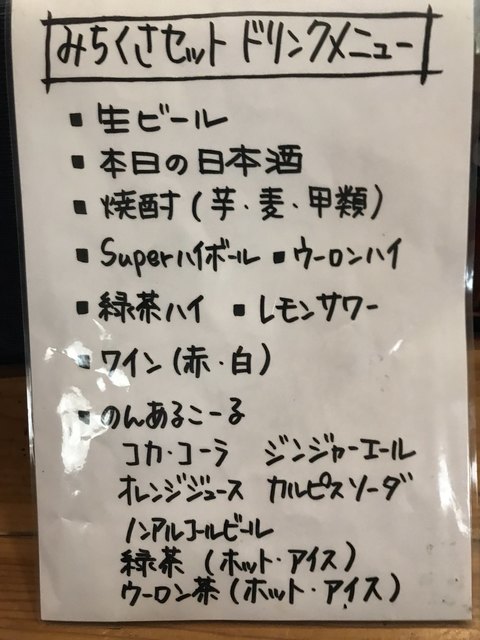 みちくさセット ドリンクメニュー
■ 生ビール
■ 本日の日本酒
■ 焼酎 (芋・麦・甲類)
■ Superハイボール ■ ウーロンハイ
■ 緑茶ハイ ■ レモンサワー
■ ワイン (赤・白)
■ のんあるこーる
コカ・コーラ ジンジャーエール
オレンジジュース カルピスソーダ
ノンアルコールビール
緑茶 (ホット・アイス)
ウーロン茶 (ホット・アイス)